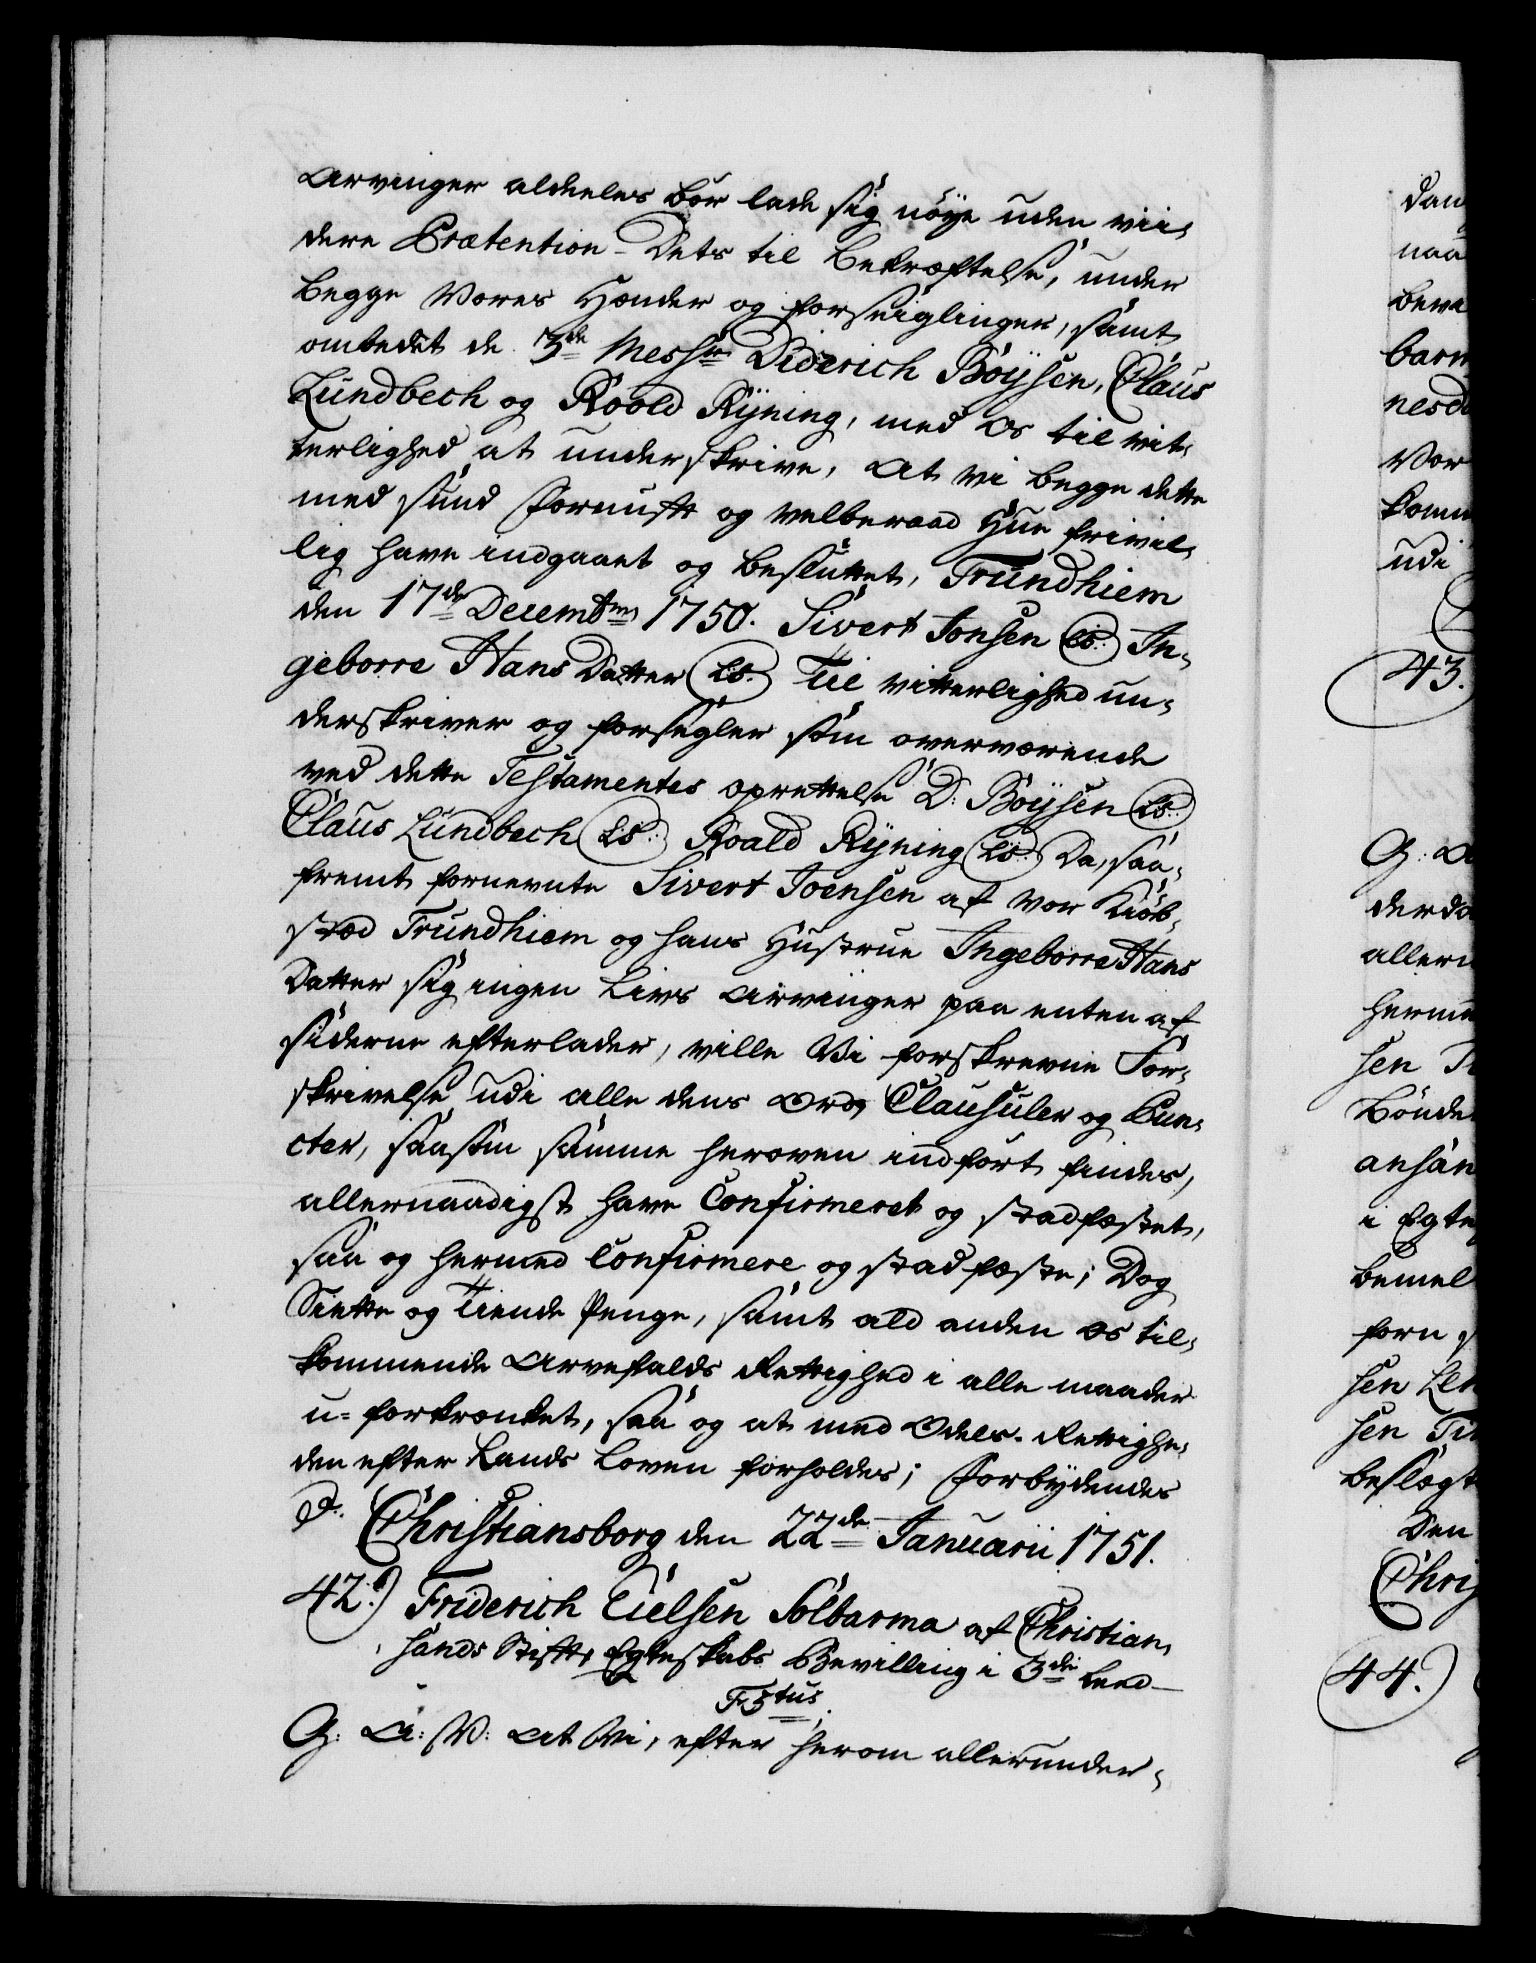 Arvinger aldeeles bør lade sig nøye uden vii,
dere Prætention – Dets til Bekræftelse, under
begge Vores Hænder og forseiglinger, samt
ombedet de 3de Messrs Diderich Böysen, Claus
Lundbech og Roald Ryning, med os til vit,
terlighed at underskrive, at vi begge dette
med sund Fornuft og velberaad Hue frivil,
lig have indgaaet og besluttet, Trundhiem
den 17de Decembris 1750. Sivert Jonsen LS. In,
geborre Hans Datter LS. Til vitterlighed un,
derskriver og forsegler som overværende
ved dette Testamentes oprettelse D: Böysen LS.
Claus Lundbech LS. Roald Ryning LS. Da, saa,
fremt fornevnte Sivert Joensen af vor Kiøb,
stæd Trundhiem og hans Hustrue Ingeborre Hans
Datter sig ingen Livs Arvinger paa enten af
siderne efterlader, ville Vi forskrevne For,
skrivelse udi alle dens Ord, Clausuler og Pun,
cter, saasom samme heroven indført findes,
allernaadigst have Confirmeret og stadfæstet,
saa og hermed Confirmere og stadfæste; Dog
Siette og Tiende Penge, samt ald anden os til,
kommende Arvefalds Rettighed i alle maader
u=forkrænket, saa og at med Odels-Rettighe,
den efter Lands Loven forholdes; Forbydendes
P. Christiansborg den 22de Januarii 1751.
42.) Friderich Nielsen Solbarma af Christian,
sands Stift, Egteskabs Bevilling i 3die Leed
F 5tus.
G: A: V: At Vi, efter herom allerunder,
dan
naa
beva
barm
nesd
Vor
komm
udi
43.
G: A
derda
allern
herme
sen
Bönde
anhan
i Egte
bemel
forn
sen
sen
beslægt
Den
Chris
44.)